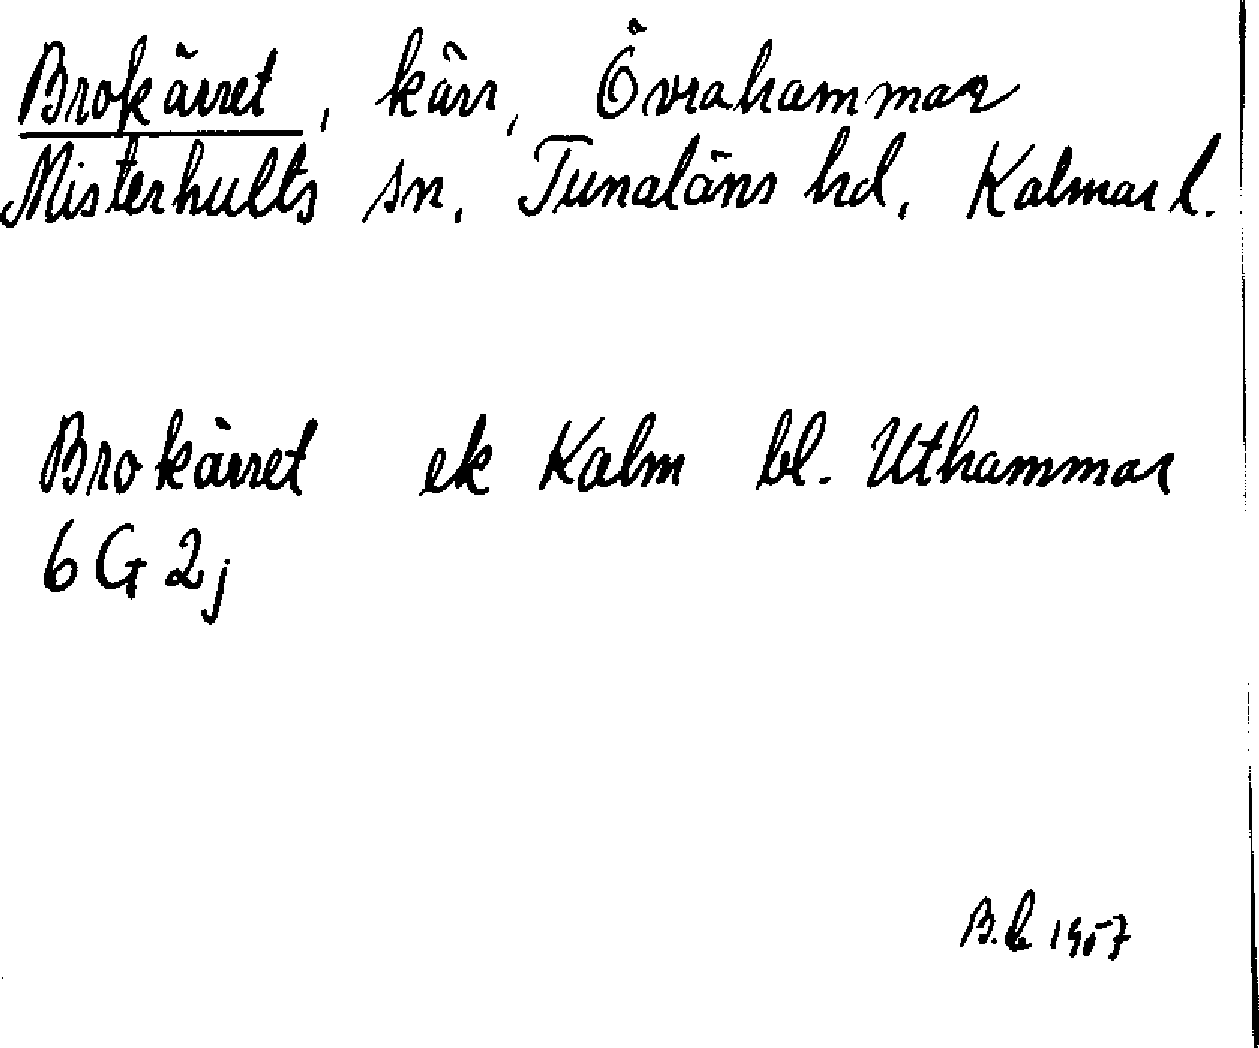 Brokärret, kärr, Övrahammar
Misterhults sn. Tunaläns hd, Kalmar l.
Brokärret ek Kalm bl. Uthammar
6 G 2j
1957